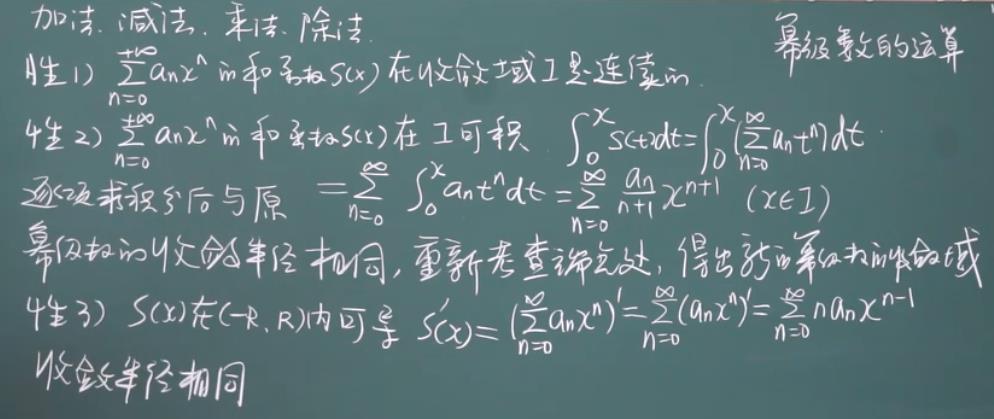 幂级数的运算
加法、减法、乘法、除法.
性1) \sum_{n=0}^{+\infty} a_n x^n 的和函数S(x)在收敛域I是连续的.
性2) \sum_{n=0}^{+\infty} a_n x^n 的和函数S(x)在I可积 \int_0^x S(t)dt = \int_0^x (\sum_{n=0}^{\infty} a_n t^n)dt.
逐项求积分后与原 = \sum_{n=0}^{\infty} \int_0^x a_n t^n dt = \sum_{n=0}^{\infty} \frac{a_n}{n+1} x^{n+1} (x∈I)
幂级数的收敛半径相同, 重新考查端点处, 得出新的幂级数的收敛域
性3) S(x)在(-R, R)内可导 S'(x) = (\sum_{n=0}^{\infty} a_n x^n)' = \sum_{n=0}^{\infty} (a_n x^n)' = \sum_{n=0}^{\infty} n a_n x^{n-1}
收敛半径相同